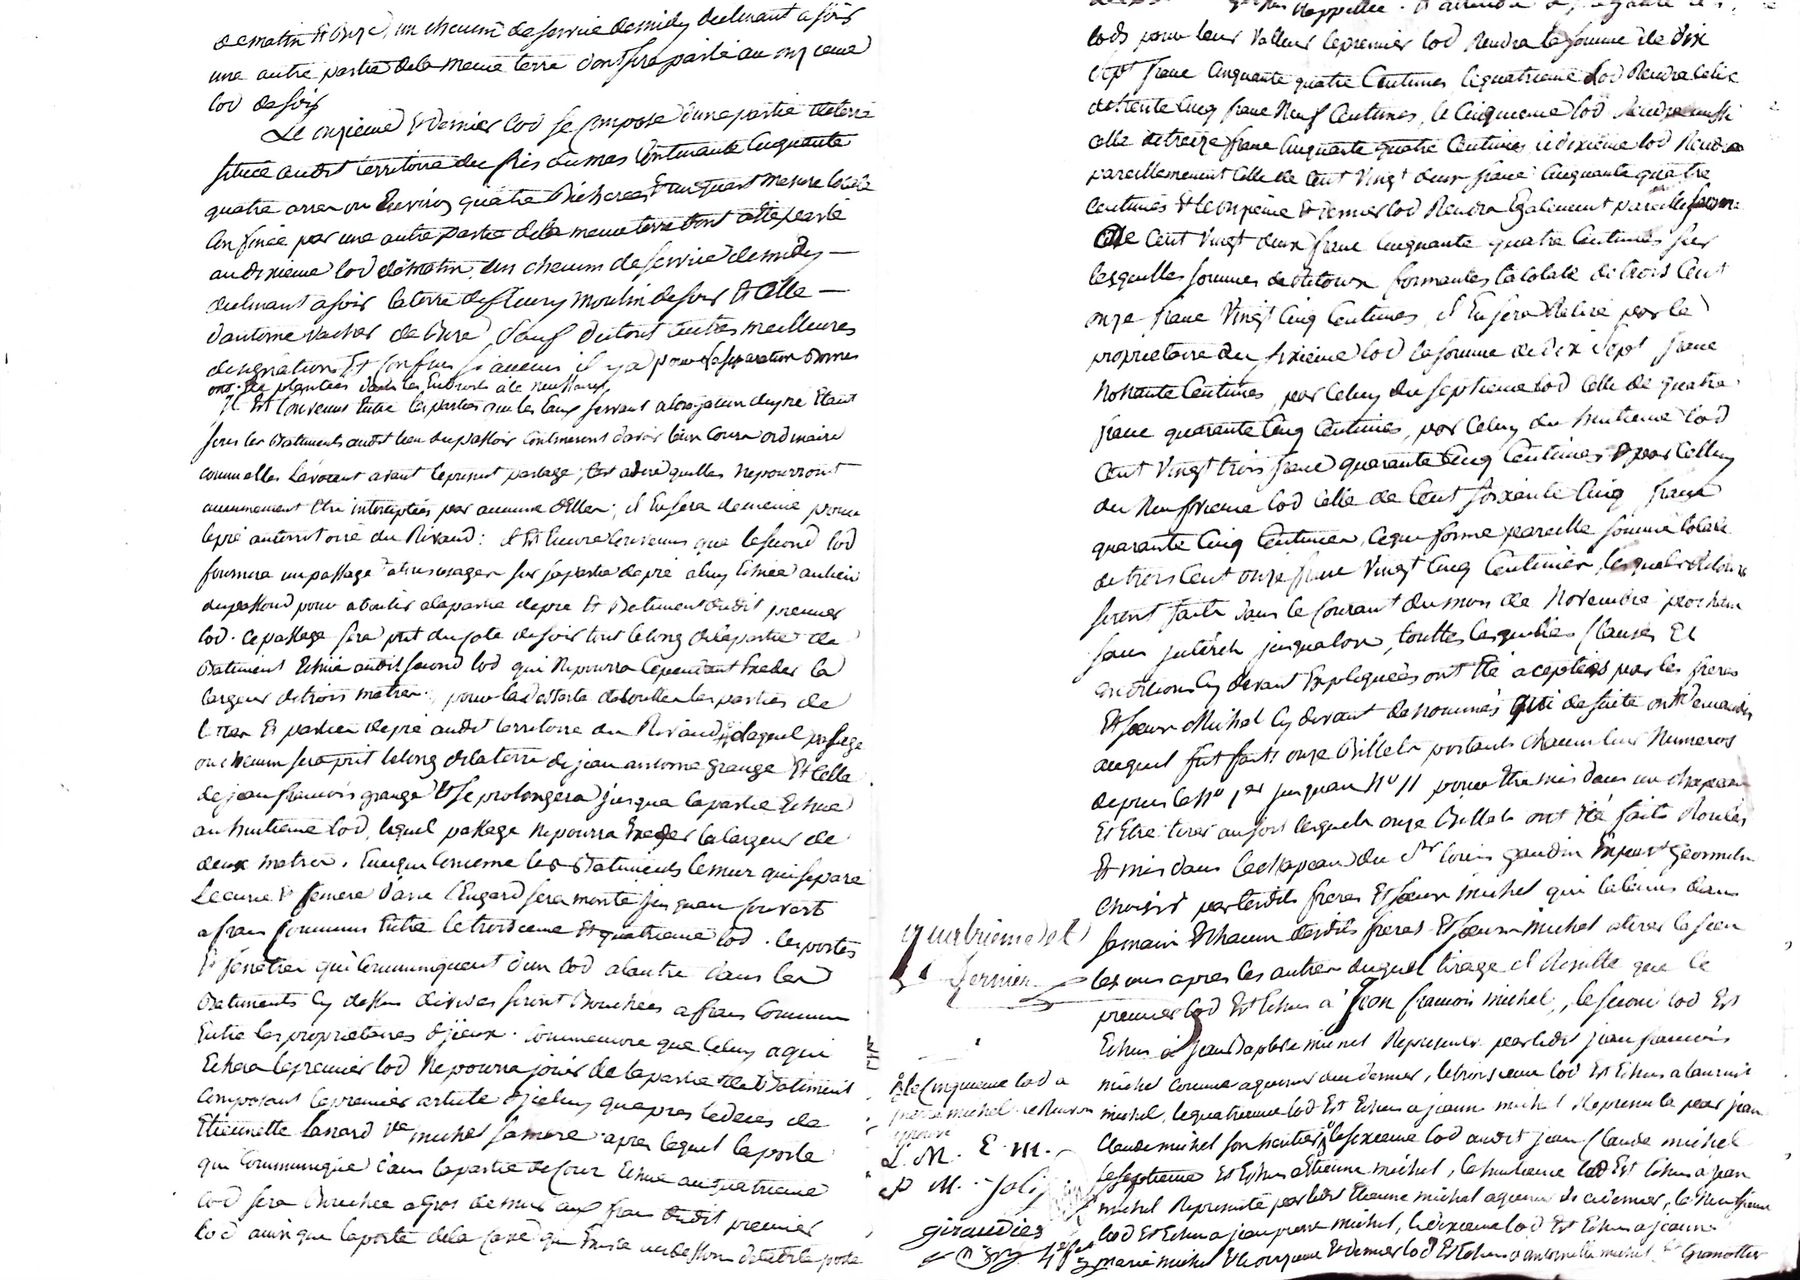 de matin & bize, un chemin de servie de midy declinant a soir
une autre partie de la meme terre dont sera parlé au onzieme
lod de soir
Le onzieme & dernier lod se compose d'une partie de terre
située audit territoire du contenante cinquante
quatre ares ou Environ quatre Bicherees & un quart mesure locale
Confinée par une autre partie de la meme terre dont a été parlé
au dixieme lod de matin, un chemin de servie de midy
declinant a soir la terre de fleury moulin de soir & celle
d'antoine vacher de bize, sauf du tout autres meilleures
designations Et confins si aucuns il y a pour la separation Bornes
ont été plantées dans les Endroits
Il Est Convenus Entre les parties que les Eaux servant a
sous les Batiments audit lieu du passoir continueront d'avoir leur Cours ordinaire
comme elles L'avoient avant le present partage, c'est a dire quelles ne pourront
aucunement Etre interceptées par aucune d'Elles; il En sera de meme pour
le pré au territoire du Rivaud: il Est Encore Convenus que le second lod
fournira un passage sur sa partie de pré a luy Echue au lieu
du passoud pour aboutir a la partie de pré & Batiment dudit premier
lod. ce passage sera prit du coté de soir tout le long de la partie de
Batiment Echue audit second lod qui ne pourra Cependant Exeder la
largeur de trois metres. pour la de toutes les parties de
terres & parties de pré audit territoire du Rivaud, lequel passage
ou chemin sera prit le long de la terre de jean antoine grange Et Celle
de jean francois grange & se prolongera jusqua la partie Echue
au huitieme lod, lequel passage ne pourra Exeder la largeur de
deux metres. En ce qui Concerne les Batiments le mur qui separe
L'ecurie & feniere d'avec l'Engard sera monté jusquau couvert
a frais communs Entre le troisieme & quatrieme lod. les portes
& fenetres qui Communiquent d'un lod a l'autre dans les
Batiments Cy dessus divisés seront Bouchées a frais Commun
Entre les proprietaires d'jceux. Comme encore que Celuy a qui
Echera le premier lod ne pourra jouir de la partie de Batiment
Composant le premier article d'jcelui quapres le décés de
Etiennette Lanard Ve michel sa mere apres lequel la porte
qui Communique dans la partie de Cour Echue au quatrieme
lod sera Bouchée a gros de mur aux frais dudit premier
lod ainsi que la porte de la Cave qui Existe au dessous de la dite porte
lods pour leur valleur le premier lod Rendra la somme de dix
sept franc Cinquante quatre Centimes le quatrieme lod Rendra Celle
de trente Cinq franc Neuf Centimes, le Cinquieme lod Rendra aussi
celle de treize franc Cinquante quatre Centimes le dixieme lod Rendra
pareillement Celle de Cent Vingt deux franc Cinquante quatre
Centimes & le onzieme & dernier lod Rendra Egalement pareille somme
de Cent Vingt deux franc Cinquante quatre Centimes sur
lesquelles sommes de Retours formantes la totale de trois Cent
onze franc Vingt Cinq Centimes, il En sera Retiré par le
proprietaire du sixieme lod la somme de dix sept franc
Nonante Centimes, par Celuy du septieme lod Celle de quatre
franc quarante Cinq Centimes, par Celuy du huitieme lod
Cent Vingt trois franc quarante Cinq Centimes & par Celluy
du Neuvieme lod Celle de Cent soixente Cinq franc
quarante Cinq Centimes, ce qui forme pareille somme totale
de trois Cent onze franc Vingt Cinq Centimes, lesquels Retours
seront faits dans le Courant du mois de Novembre prochain
sans jnterêts jusqualors, touttes lesquelles Clauses Et
Conditions Cy devant Expliqueés ont Eté aceptées par les freres
Et sœurs Michel Cy devant denommés qui de suite ont demandés
auquel fut faits onze Billets portants chacun leur Numeros
depuis le No 1er jusquau No 11 pour Etre mis dans un chapeau
Et Etre tirer au sort lesquels onze Billets ont Eté faits Roulés
& mis dans le chapeau du Sr louis gaudin Expert Géometre
Choisis par lesdits freres Et sœurs michel qui la tenus dans
sa main & chacun desdits freres & sœurs michel a tirer le sien
les uns apres les autres duquel tirage il Resulte que le
premier lod Est Echus a Jean francois michel, le second lod Est
Echus a jean Baptiste michel Representé par ledit jean francois
michel comme aquereur du dernier, le troisieme lod Est Echus a
michel, le quatrieme lod Est Echus a jeanne michel Representée par jean
Claude michel son heritier, le sixieme lod audit jean Claude michel
le septieme Est Echus a Etienne michel, le huitieme lod Est Echus a jean
michel Representé par ledit Etienne michel aquereur de ce dernier, le Neuvieme
lod Est Echus a jean pierre michel, le dixieme lod Est Echus a jeanne
marie michel & le onzieme & dernier lod Est Echus a antoinette michel Gramottier
quatrieme et
dernier
le Cinquieme lod a
pierre michel
L. M. E. M.
P M. Joly
giraudier